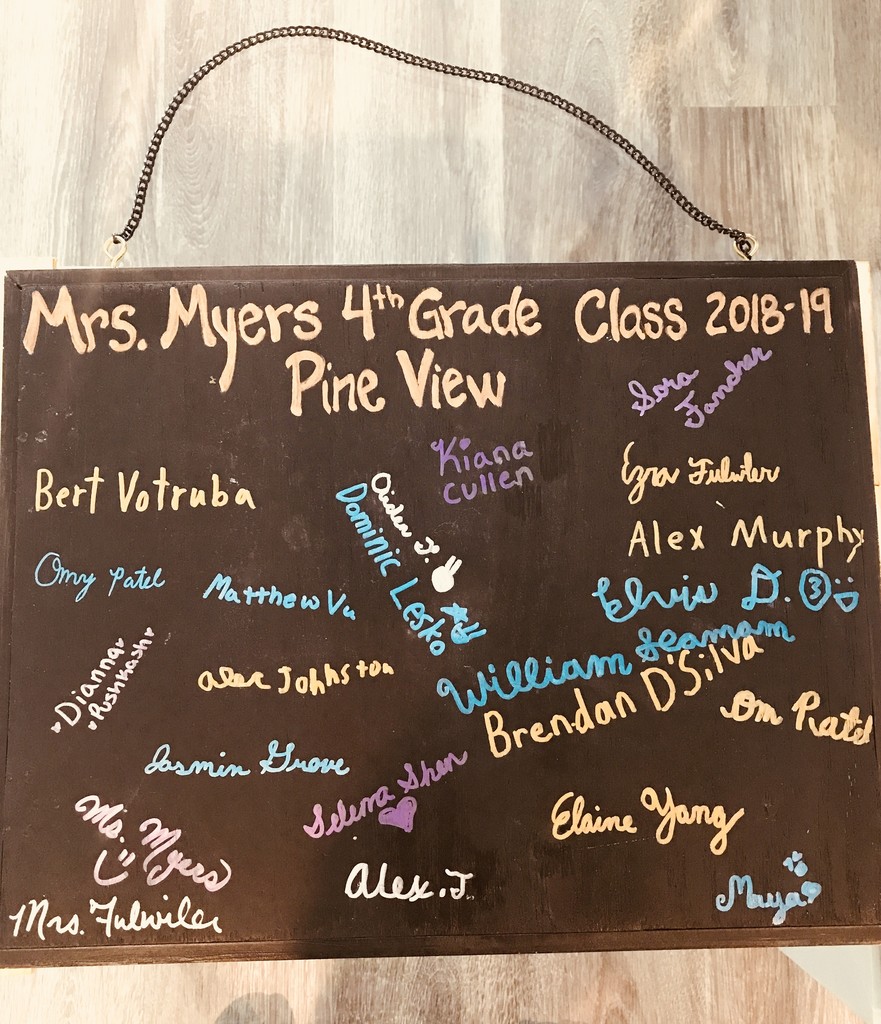 Mrs. Myers 4th Grade Class 2018-19
Pine View
Sora
Fancher
Kiana
cullen
Bert Votruba
Ezra Fulwiler
J.
Dominic Lesko
Alex Murphy
Omy Patel
Matthew Vu
Elvis D. 3
William Seamam
Brendan D'Silva
Dianna
Pushkash
alec Johnston
Om Patel
Jasmin Grove
Selena Shen
Elaine Yang
Ms. Myers
Alex.J.
Maya
Mrs. Fulwiler